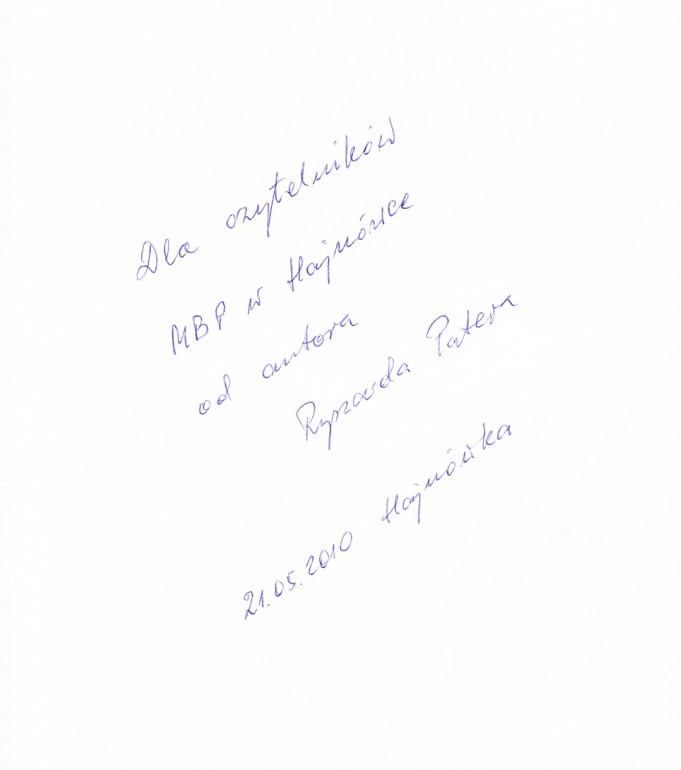 Dla czytelników
MBP w Hajnówce
od autora
Ryszarda Patera
21.05.2010 Hajnówka